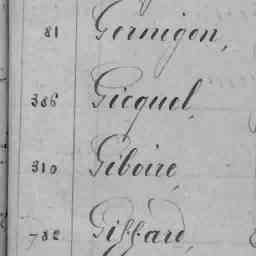 81 Germigon,
386 Gicquel,
310 Giboire,
782 Giffard,